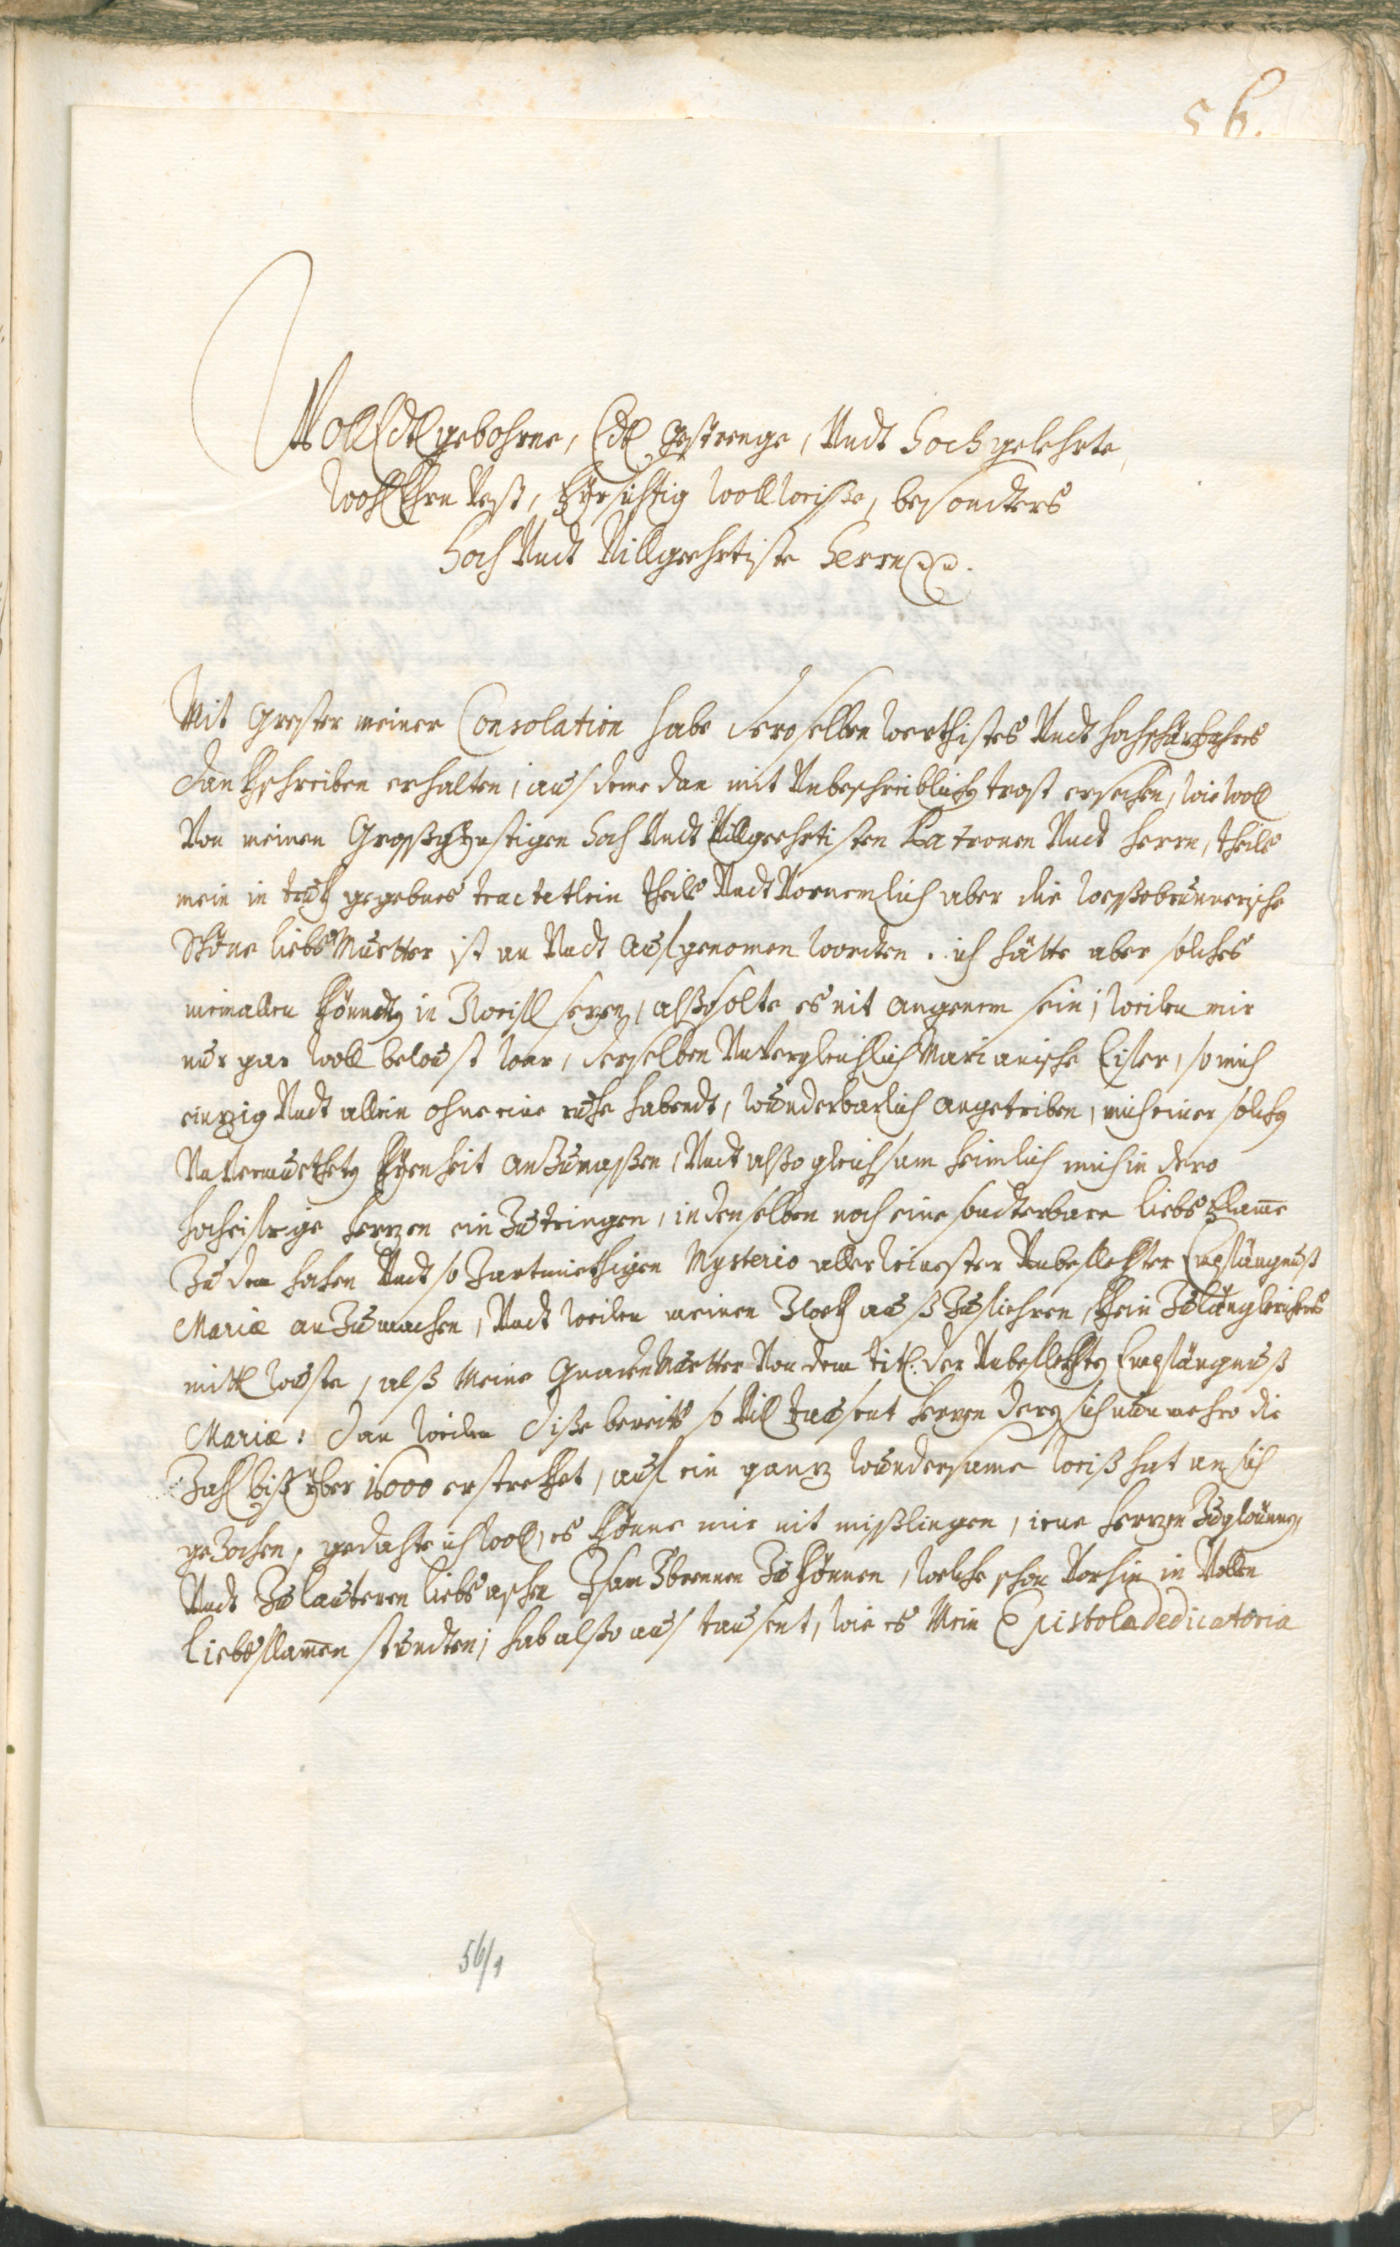 56.
WollEdlgebohrne, Edl gestrenge, Undt Hochgelehrte,
WohlEhrnVest, Fürsichtig Wollweise, besonders
Hoch Undt Villgeehrtiste Herrn
Mit Grester meiner Consolation habe deroselben werthistes Undt hochschäzbahres
dankhschreiben erhalten, aus deme dan mit Unbeschreiblichen trost ersechen, wie woll
Von meinen Grossgünstigen Hoch Undt Villgeehrtisten Patronen Undt Herrn, theils
mein in trukh gegebnes tractetlein theils Undt Vornemlich aber die Wessobrunnerische
Schöne liebs Muetter ist an Undt aufgenomen worden. ich hätte aber solches
niemallen können in Zweifl sezen, also solte es nit angenem sein, weilen mir
nur gar woll bewust war, derselben Unvergleichlich Marianische Eifer, so mich
einzig Undt allein ohne eine ruhe habendt, wunderbarlich angetriben, mich einer solchen
Unvermuetheten Küenheit anzumassen, Undt also gleichsam heimlich mich in dero
hocheifrige Herzen ein Zutringen, in denselben noch eine sonderbare liebs Flame
Zu dem hohen Undt so Zartmüethigen Mysterio allerreinester Unbeflekhter Empfängnus
Mariæ anzumachen, Undt weilen meinen Zwekh aus Zufiehren, khein Zulänglichers
mittl wuste, alß Meine Gnaden Muetter Von dem titl: der Unbeflekhten Empfängnuß
Mariæ: dan weilen dise bereits so Vil tausent Herzen deren sich nunmehro die
Zahl biß über 16000 erstrekhet, auf ein ganz wundersame weiß hat an sich
geZochen, gedachte ich woll, es khönne mir nit mißlingen, iene Herzen Zugwünnen
Undt Zu lauteren liebs aschen Zsam Zbrennen Zu khönnen, welche schon Vorhin in Vollen
Liebsflamen stundten, hab also aus tausent, wie es Mein Epistola dedicatoria
56/1